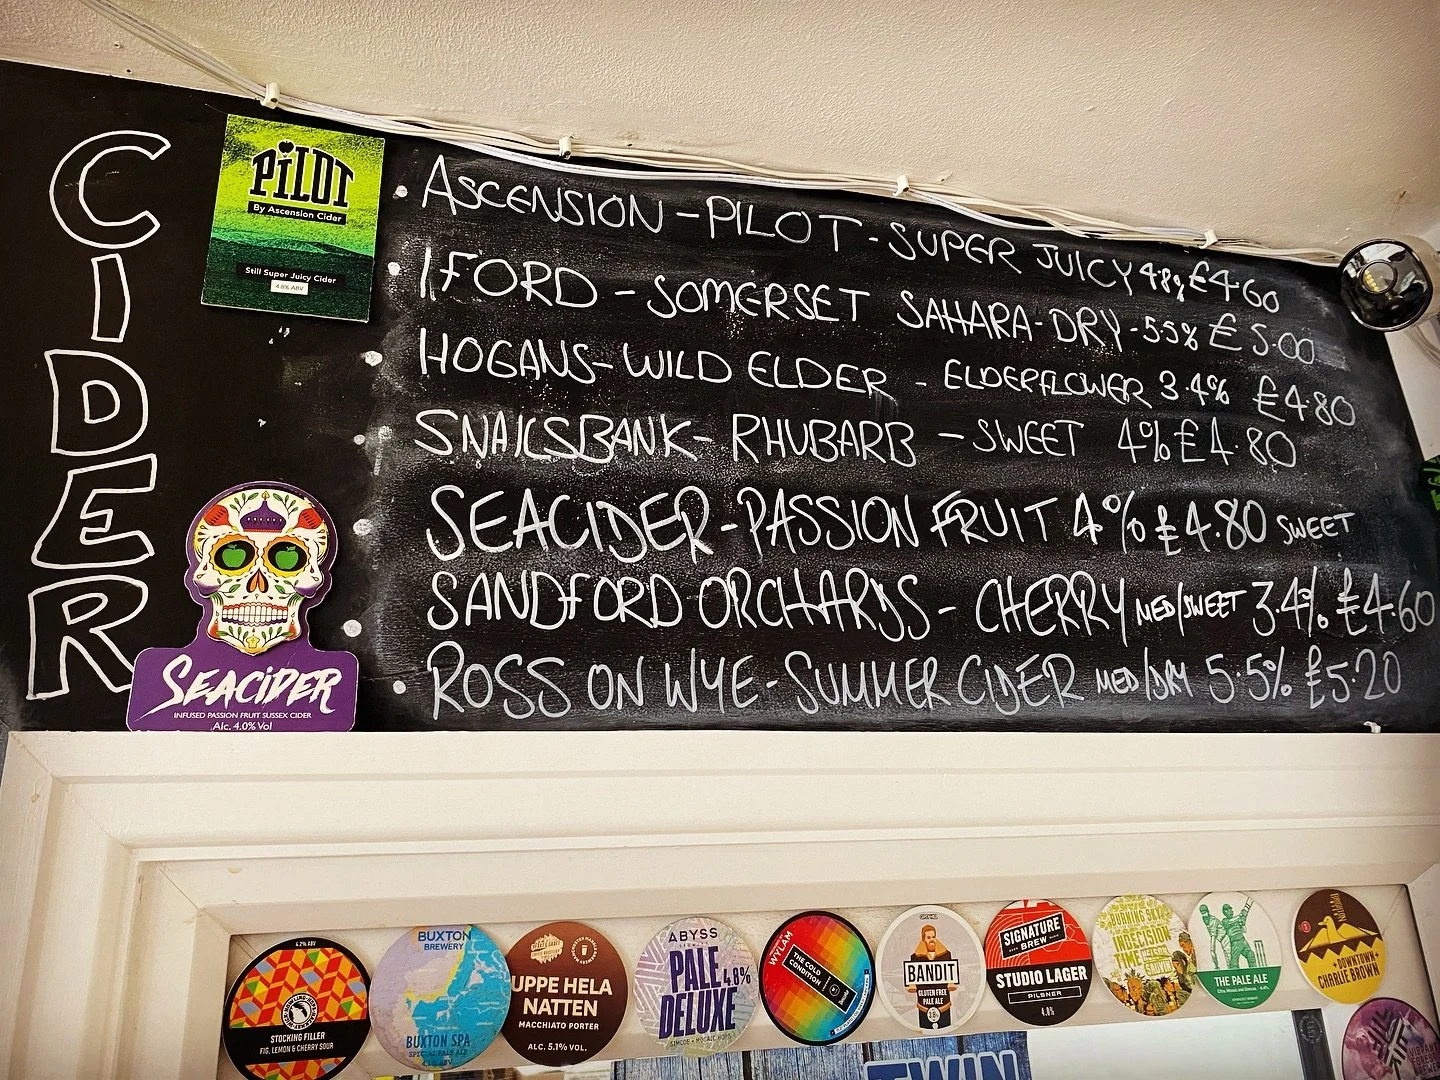 CIDER
PILOT
By Ascension Cider
Still Super Juicy Cider
4.8% ABV
ASCENSION - PILOT - SUPER JUICY 4.8% £4.60
IFORD - SOMERSET SAHARA - DRY - 5.5% £5.00
HOGANS - WILD ELDER - ELDERFLOWER 3.4% £4.80
SNAILSBANK - RHUBARB - SWEET 4% £4.80
SEACIDER - PASSION FRUIT 4% £4.80 SWEET
SANDFORD ORCHARDS - CHERRY MED/SWEET 3.4% £4.60
ROSS ON WYE - SUMMER CIDER MED/DRY 5.5% £5.20
SEACIDER
INFUSED PASSION FRUIT SUSSEX CIDER
Alc. 4.0% Vol
4.2% ABV
STOCKING FILLER
FIG, LEMON & CHERRY SOUR
BUXTON
BREWERY
BUXTON SPA
SPECIAL PALE ALE
UPPE HELA
NATTEN
MACCHIATO PORTER
ALC. 5.1% VOL.
ABYSS
PALE 4.8%
DELUXE
SIMCOE + MOSAIC HOPS
WYLAM
THE COLD
CONDITION
BANDIT
GLUTEN FREE
PALE ALE
SIGNATURE
BREW
STUDIO LAGER
PILSNER
4.8%
BURNING SKY
INDECISION
TIME
THE PALE ALE
DOWNTOWN
CHARLIE BROWN
TWIN